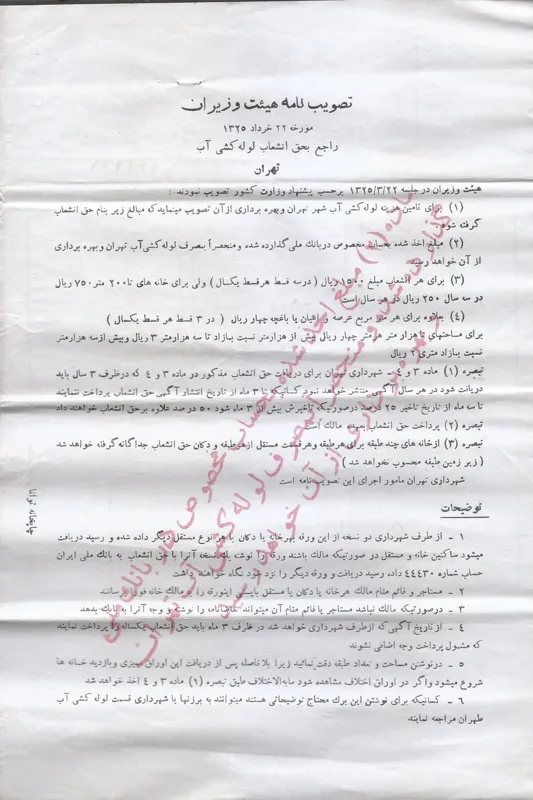 تصویب نامه هیئت وزیران
مورخه ۲۲ خرداد ۱۳۲۵
راجع بحق انشعاب لوله کشی آب
تهران
هیئت وزیران در جلسه ۱۳۲۵/۳/۲۲ برحسب پیشنهاد وزارت کشور تصویب نمودند :
(۱) برای تامین هزینه لوله کشی آب شهر تهران وبهره برداری از آن تصویب مینماید که مبالغ زیر بنام حق انشعاب
گرفته شود
(۲) مبلغ اخذ شده بحساب مخصوص در بانک ملی گذارده شده و منحصراً بمصرف لوله کشی آب تهران وبهره برداری
از آن خواهد رسید
(۳) برای هر انشعاب مبلغ ۱۵۰۰ ریال ( در سه قسط هر قسط یکسال ) ولی برای خانه های تا ۲۰۰ متر ۷۵۰ ریال
در سه سال ۲۵۰ ریال در هر سال است
(۴) بعلاوه برای هر متر مربع عرصه و اعیان یا باغچه چهار ریال ( در ۳ قسط هر قسط یکسال )
برای مساحتهای تا هزار متر هر متر چهار ریال بیش از هزار متر نسبت بمازاد تا سه هزار متر ۳ ریال وبیش از سه هزار متر
نسبت بمازاد متری ۲ ریال
تبصره (۱) ماده ۳ و ۴ - شهرداری تهران برای دریافت حق انشعاب مذکور دو ماده ۳ و ۴ که در ظرف ۳ سال باید
دریافت شود در هر سال آگهی منتشر خواهد نمود کسانیکه تا ۳ ماه از تاریخ انتشار آگهی حق انشعاب پرداخت ننمایند
تا سه ماه از تاریخ تاخیر ۲۵ درصد در صورتیکه تاخیرش بیش از ۳ ماه شود ۵۰ درصد علاوه بر حق انشعاب خواهند داد
تبصره (۲) پرداخت حق انشعاب بعهده مالک است
تبصره (۳) از خانه های چند طبقه برای هر طبقه وهر قسمت مستقل از هر طبقه و دکان حق انشعاب جداگانه گرفته خواهد شد
( زیر زمین طبقه محسوب نخواهد شد )
شهرداری تهران مامور اجرای این تصویب نامه است
توضیحات
۱ - از طرف شهرداری دو نسخه از این ورقه بهر خانه یا دکان یا هر نوع مستقل دیگر داده شده و رسید دریافت
میشود ساکنین خانه و مستقل در صورتیکه مالک باشند ورقه را نوشته یک نسخه آنرا با حق انشعاب به بانک ملی ایران
حساب شماره ۴۴۴۳۰ داده رسید دریافت و ورقه دیگر را نزد خود نگاه خواهند داشت
۲ - مستاجر و قائم مقام مالک هر خانه یا دکان یا مستقل بایستی اینورقه را به مالک خانه فوراً برسانند
۳ - در صورتیکه مالک نباشد مستاجر یا قائم مقام آن میتواند تقاضانامه را نوشته و وجه آنرا به بانک بدهد
۴ - از تاریخ آگهی که از طرف شهرداری خواهد شد در ظرف ۳ ماه باید حق انشعاب یکساله را پرداخت نمایند
که مشمول پرداخت وجه اضافی نشوند
۵ - در نوشتن مساحت و تعداد طبقه دقت نمائید زیرا بلا فاصله پس از دریافت این اوراق ممیزی وبازدید خانه ها
شروع میشود واگر در اوراق اختلاف مشاهده شود مابه الاختلاف طبق تبصره (۱) ماده ۳ و ٤ اخذ خواهد شد
۶ - کسانیکه برای نوشتن این برگ محتاج توضیحاتی هستند میتوانند به برزنها یا شهرداری قسمت لوله کشی آب
طهران مراجعه نمایند
چاپخانه توانا
ماده (۲) مبلغ اخذ شده بحساب مخصوص در بانک ملی
گذارده شده و منحصراً بمصرف لوله کشی آب تهران
و بهره برداری از آن خواهد رسید